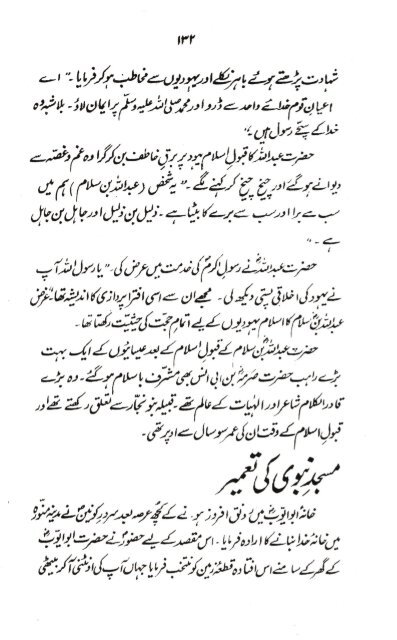 ۱۳۲
شہادت پڑھتے ہوئے باہر نکلے اور یہودیوں سے مخاطب ہو کر فرمایا۔ "اے
اعیانِ قوم خدائے واحد سے ڈرو اور محمد صلی اللہ علیہ وسلّم پر ایمان لاؤ۔ بلاشبہ وہ
خدا کے سچّے رسول ہیں"
حضرت عبداللہؓ کا قبولِ اسلام یہود پر برقِ خاطف بن کر گرا وہ غم و غصّہ سے
دیوانے ہو گئے اور چیخ چیخ کر کہنے لگے۔ "یہ شخص (عبداللہ بن سلام) ہم میں
سب سے برا اور سب سے برے کا بیٹا ہے۔ ذلیل بن ذلیل اور جاہل بن جاہل
ہے۔"
حضرت عبداللہؓ نے رسولِ اکرمؐ کی خدمت میں عرض کی۔ "یا رسول اللہ آپ
نے یہود کی اخلاقی پستی دیکھ لی۔ مجھے ان سے اسی افترا پردازی کا اندیشہ تھا۔" غرض
عبداللہ بن سلامؓ کا اسلام یہودیوں کے لیے اتمامِ حجت کی حیثیت رکھتا تھا۔
حضرت عبداللہؓ بن سلام کے قبولِ اسلام کے بعد عیسائیوں کے ایک بہت
بڑے راہب حضرت صرمہؓ بن ابی انس بھی مشرّف باسلام ہو گئے۔ وہ بڑے
قادر الکلام شاعر اور الٰہیات کے عالم تھے۔ قبیلہ بنو نجّار سے تعلق رکھتے تھے اور
قبولِ اسلام کے وقت ان کی عمر سو سال سے اوپر تھی۔
مسجدِ نبوی کی تعمیر
خانۂ ابو ایوبؓ میں رونق افروز ہونے کے کچھ عرصہ بعد سرورِ کونینؐ نے مدینہ منوّرہ
میں خانۂ خدا بنانے کا ارادہ فرمایا۔ اس مقصد کے لیے حضورؐ نے حضرت ابو ایوبؓ
کے گھر کے سامنے اس افتادہ قطعۂ زمین کو منتخب فرمایا جہاں آپ کی اونٹنی آ کر بیٹھی